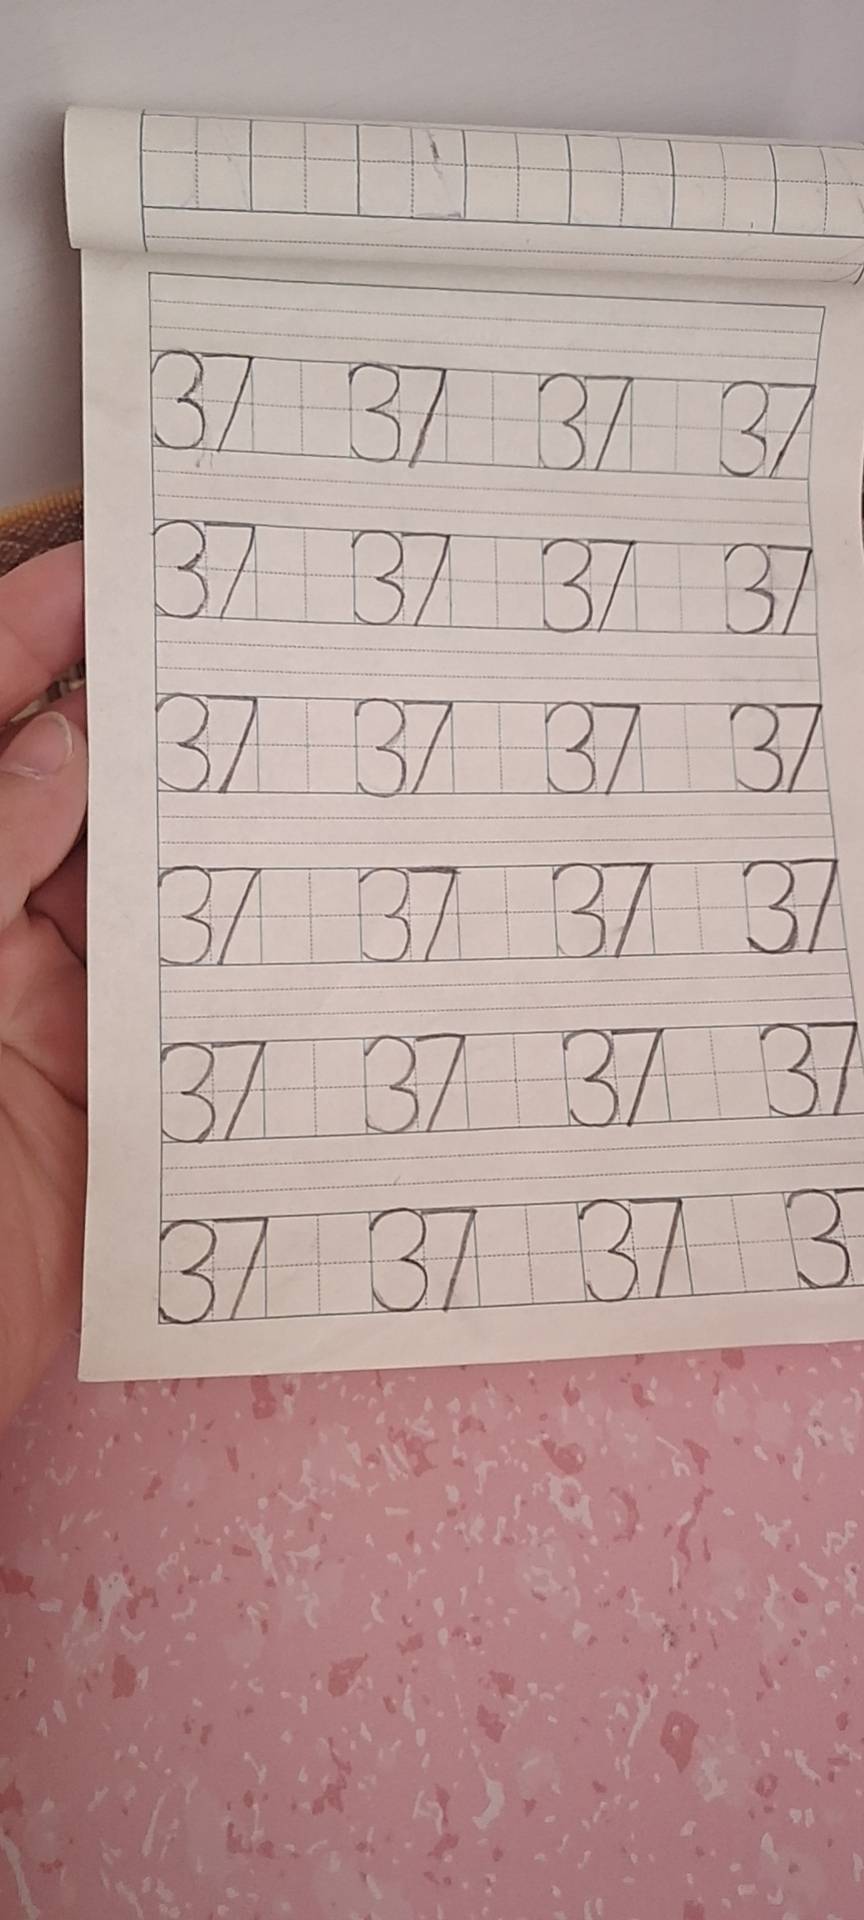 37 37 37 37
37 37 37 37
37 37 37 37
37 37 37 37
37 37 37 37
37 37 37 3